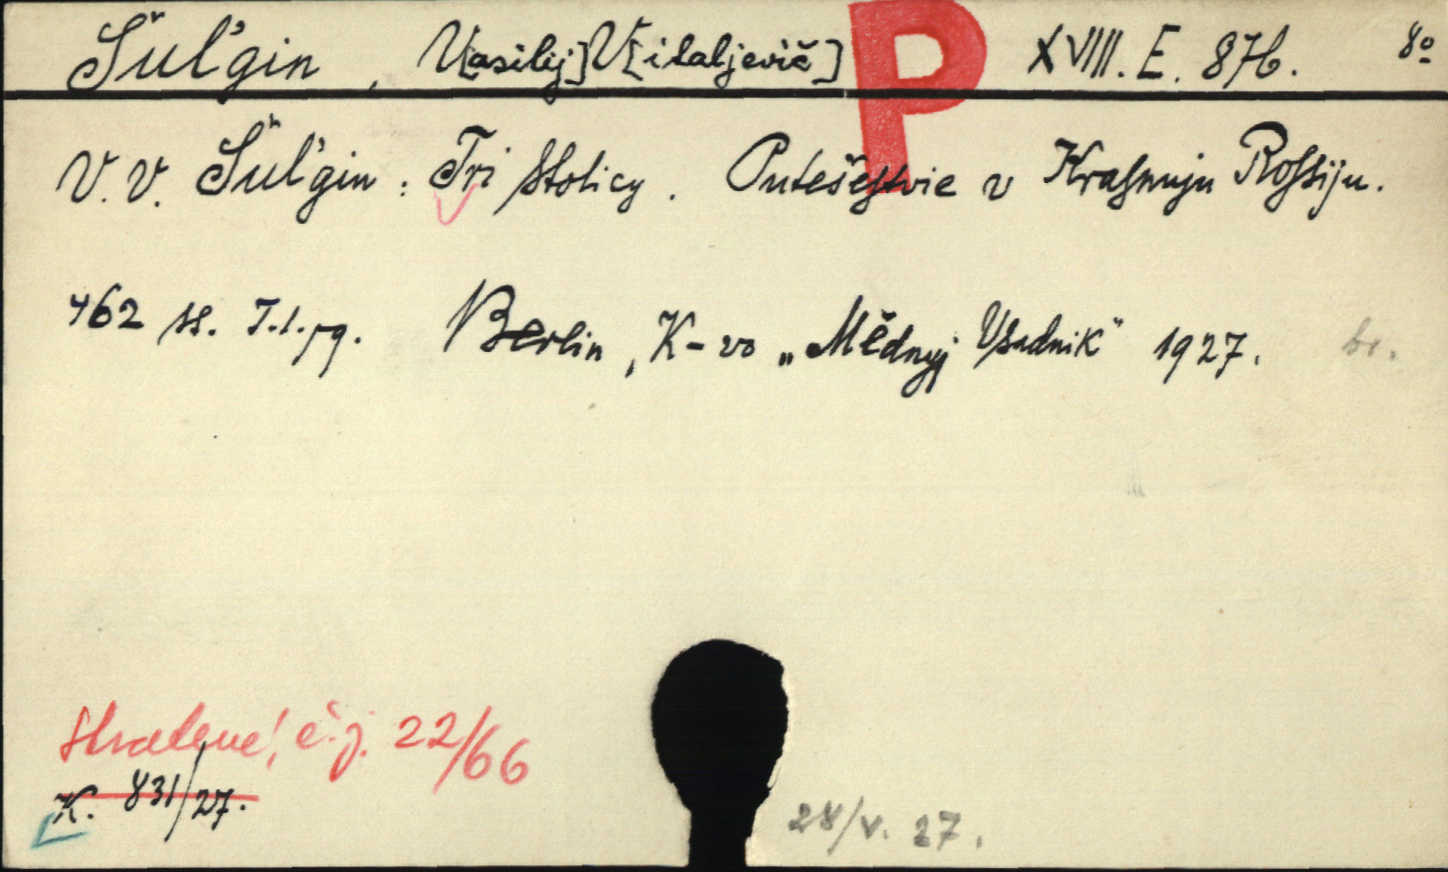 Šul'gin, V[asilij] V[italjevič] P XVIII. E. 876. 8º
V. V. Šul'gin: Tri stolicy. Putešestvie v Krasnuju Rossiju.
462 ss. T.l.pg. Berlin, K-vo „Mědnyj Vsadnik" 1927. br.
ztratené, č.j. 22/66
K. 831/27.
28/V. 27.